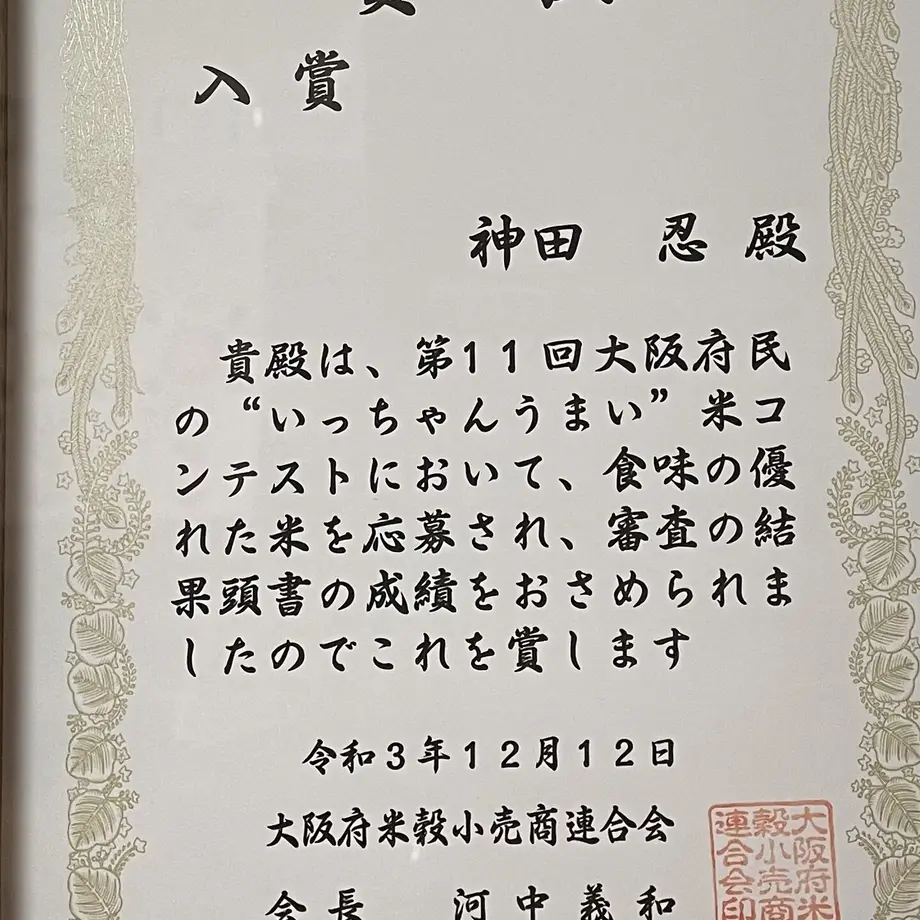 入賞
神田 忍 殿
貴殿は、第11回大阪府民
の“いっちゃんうまい”米コ
ンテストにおいて、食味の優
れた米を応募され、審査の結
果頭書の成績をおさめられま
したのでこれを賞します
令和3年12月12日
大阪府米穀小売商連合会
会長 河中義和
大阪府米
穀小売商
連合会印